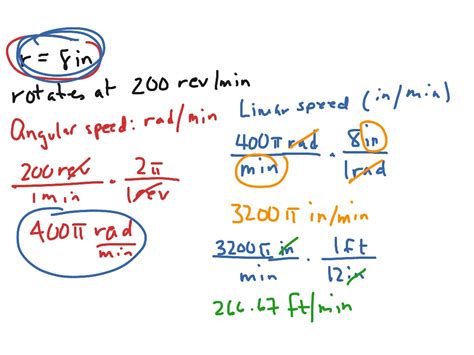 r = 8in
rotates at 200 rev/min
Angular speed: rad/min
200 rev/1min · 2π/1rev
400π rad/min
Linear speed (in/min)
400π rad/min · 8in/1rad
3200π in/min
3200π in/min · 1ft/12in
266.67 ft/min